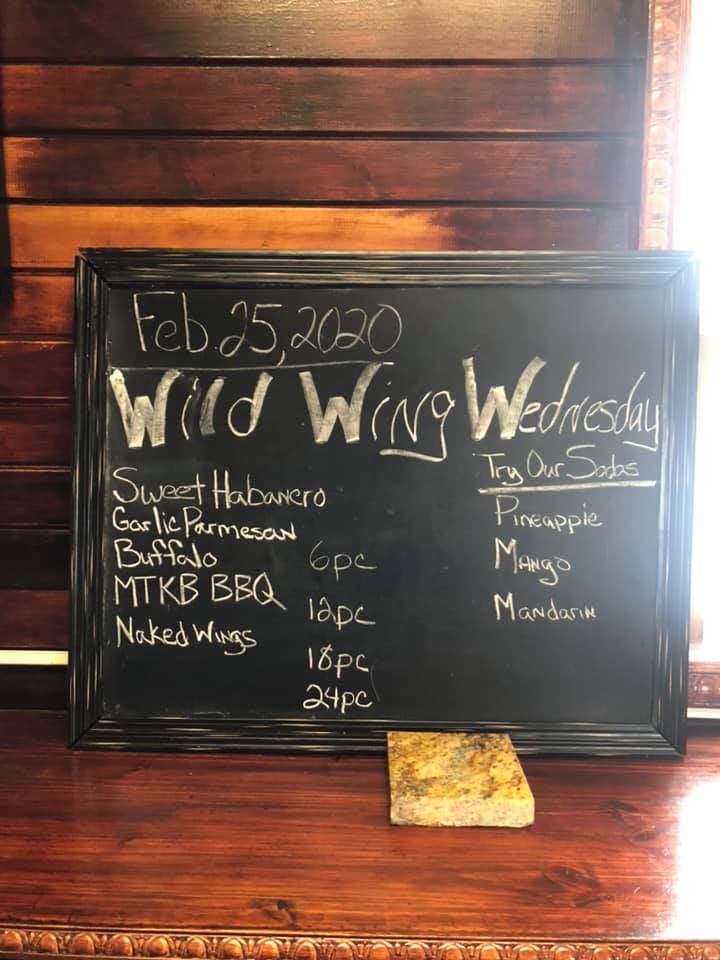 Feb. 25, 2020
Wild Wing Wednesday
Sweet Habanero
Garlic Parmesan
Buffalo
MTKB BBQ
Naked Wings
6pc
12pc
18pc
24pc
Try Our Sodas
Pineapple
Mango
Mandarin